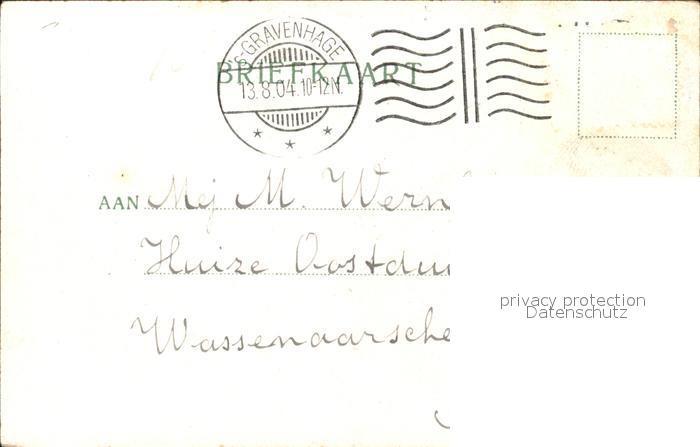 'S-GRAVENHAGE
BRIEFKAART
13.8.04.10-12N.
AAN Mej M. Wern
Huize Oostdui
Wassenaarsche
privacy protection
Datenschutz